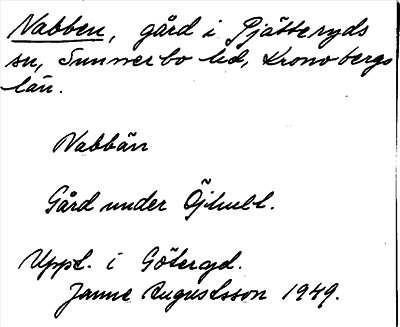 Nabben, gård i Pjätteryds
sn, Sunnerbo hd, Kronobergs
län.
Nabbän
Gård under Öjhult.
Uppt. i Göteryd.
Janne Augustsson 1949.